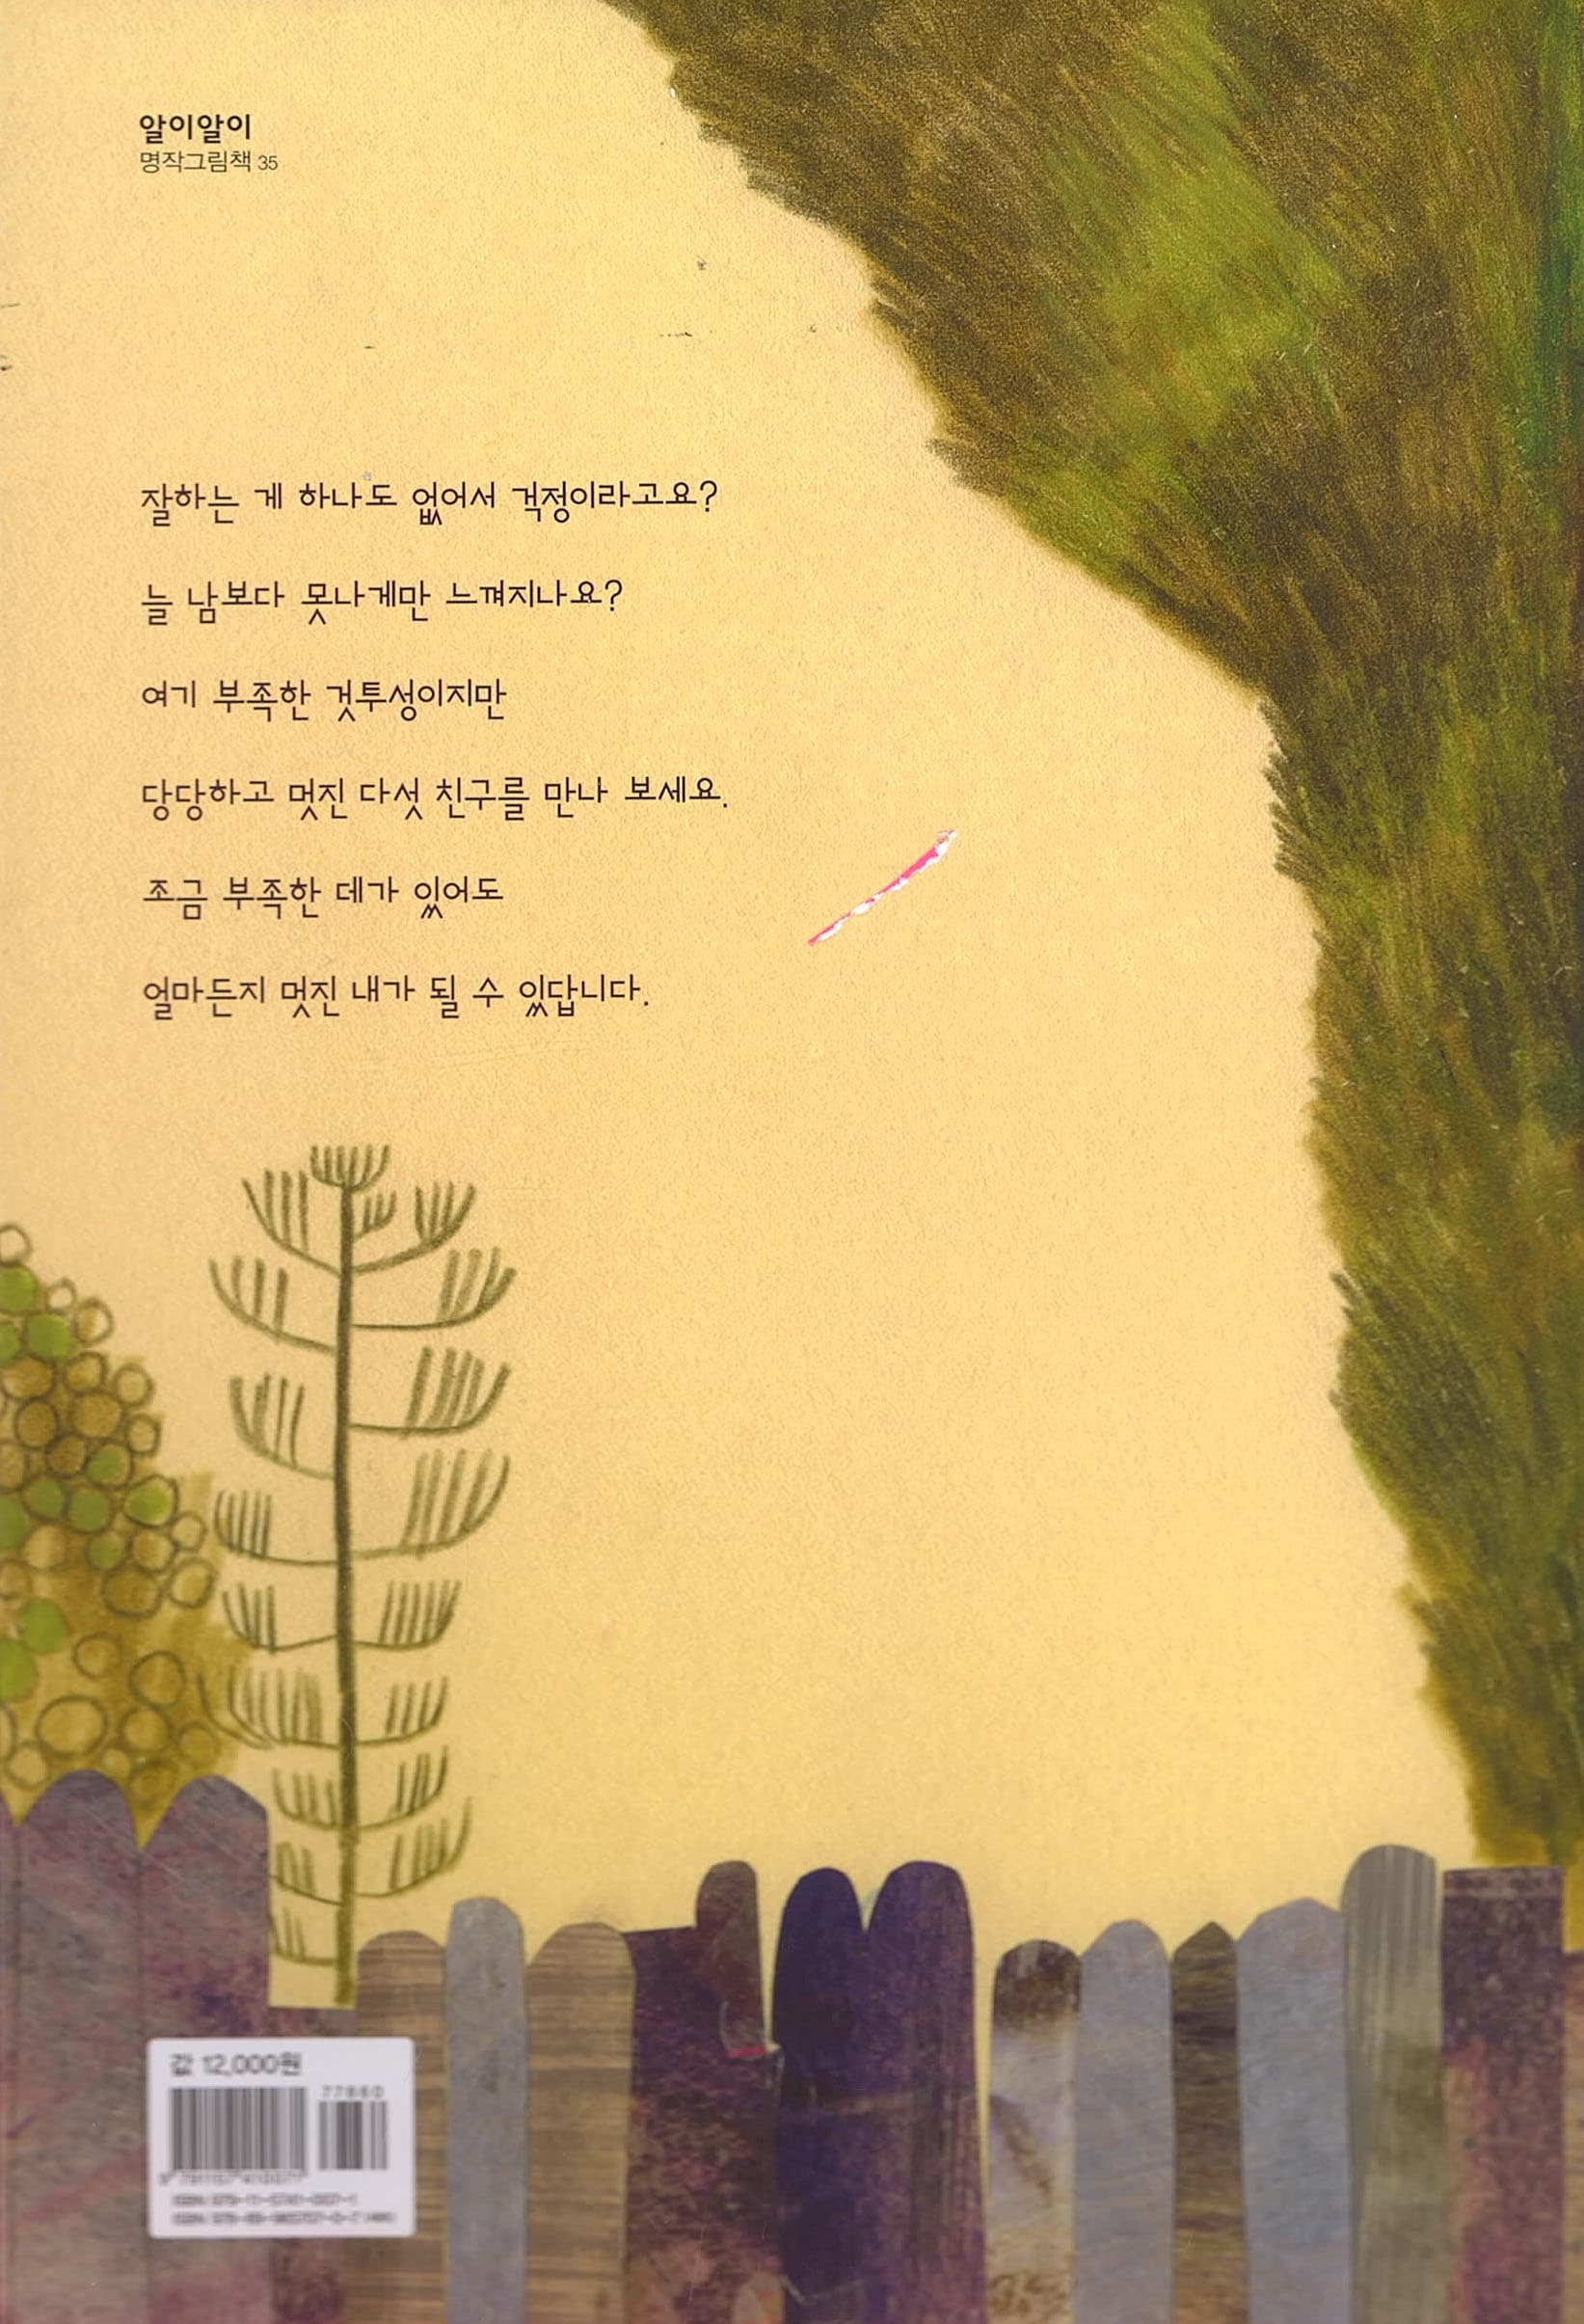 알이알이
명작그림책 35
잘하는 게 하나도 없어서 걱정이라고요?
늘 남보다 못나게만 느껴지나요?
여기 부족한 것투성이지만
당당하고 멋진 다섯 친구를 만나 보세요.
조금 부족한 데가 있어도
얼마든지 멋진 내가 될 수 있답니다.
값 12,000원
77860